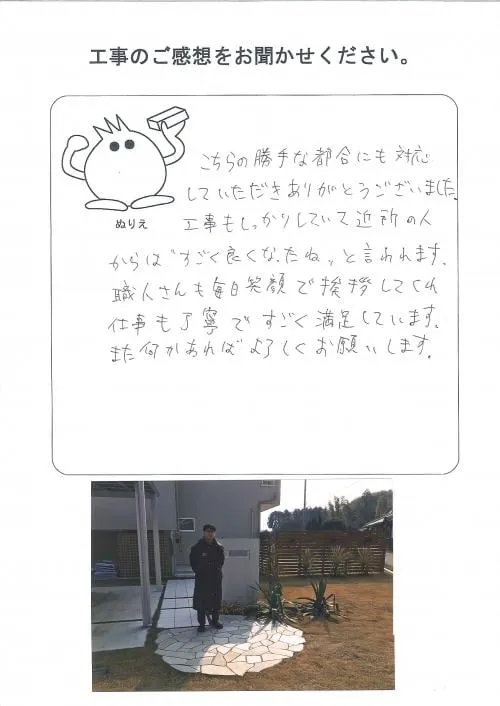 工事のご感想をお聞かせください。
ぬりえ
こちらの勝手な都合にも対応
していただきありがとうございました。
工事もしっかりしていて近所の人
からは"すごく良くなったね〟と言われます。
職人さんも毎日笑顔で挨拶してくれ
仕事も丁寧ですごく満足しています。
また何かあればよろしくお願いします。